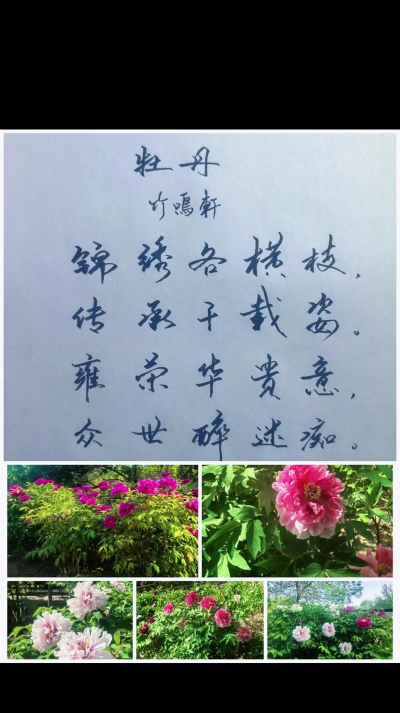 牡丹
竹鸣轩
锦绣各横枝，
传承千载姿。
雍荣华贵意，
众世醉迷痴。